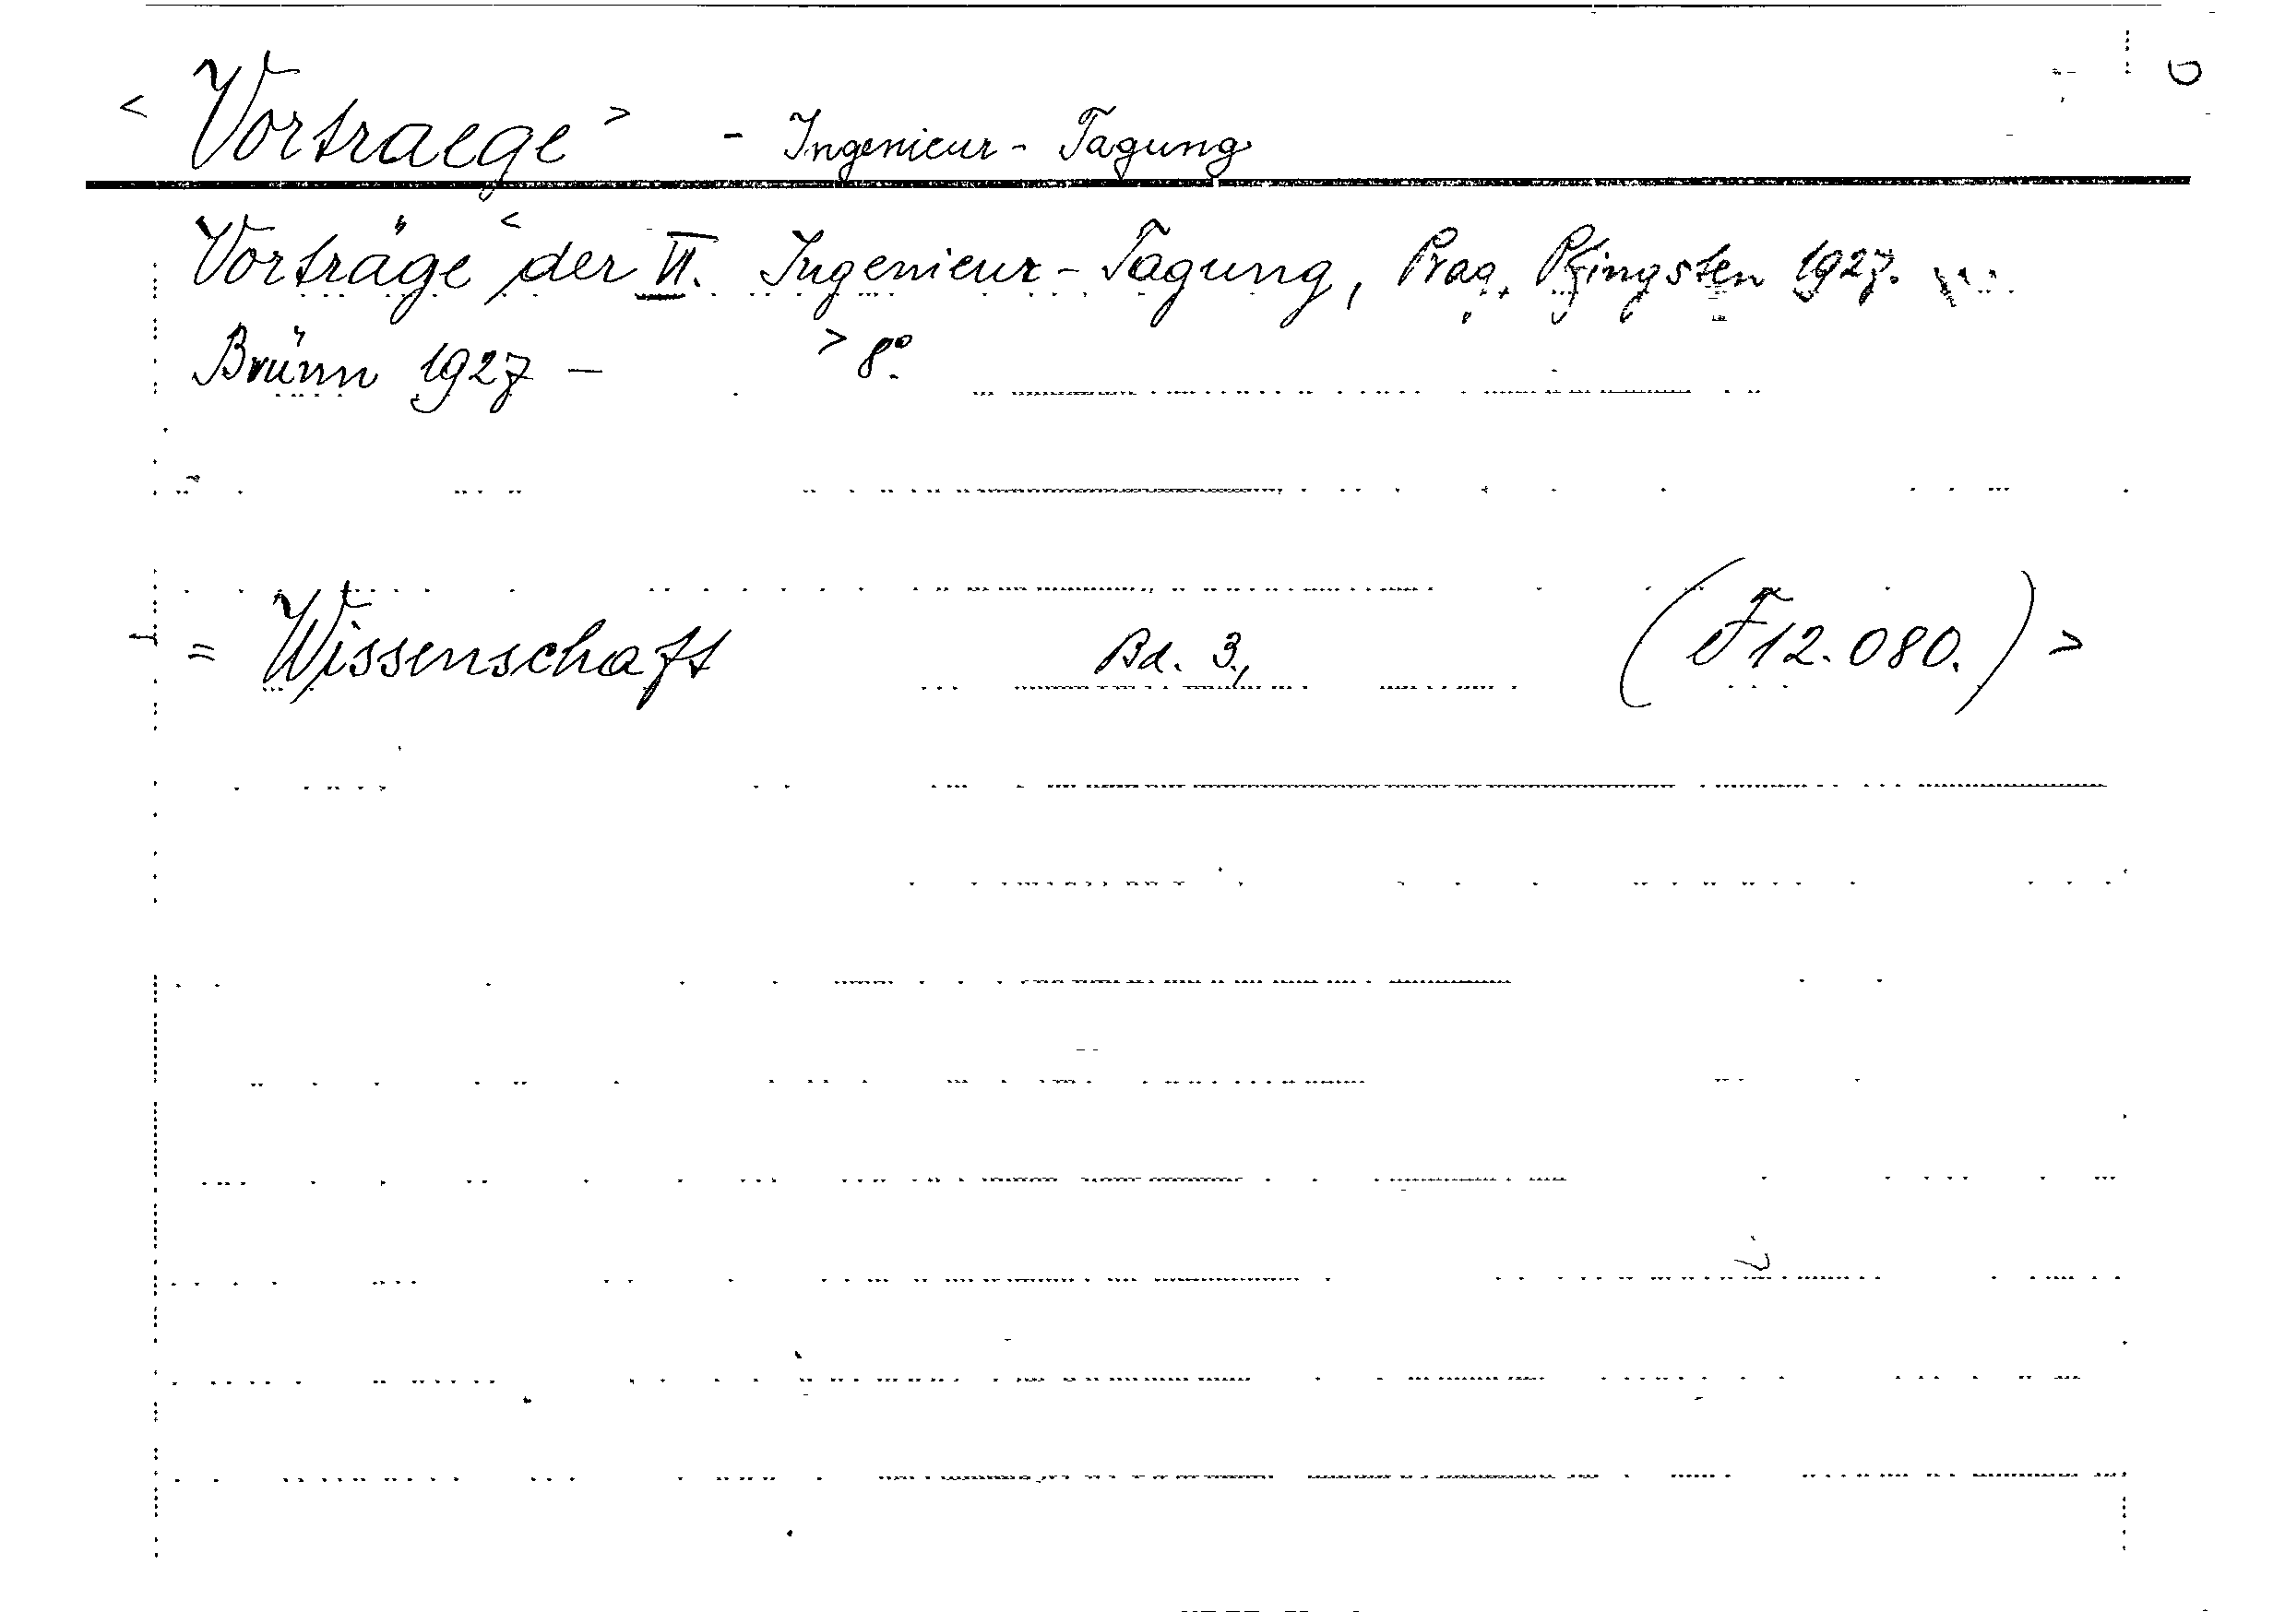 < Vortraege > - Ingenieur - Tagung
Vorträge < der VI. Ingenieur - Tagung, Prag, Pfingsten 1927.
Brünn 1927 - > 8°.
= Wissenschaft Bd. 3, (F 12.080.) >